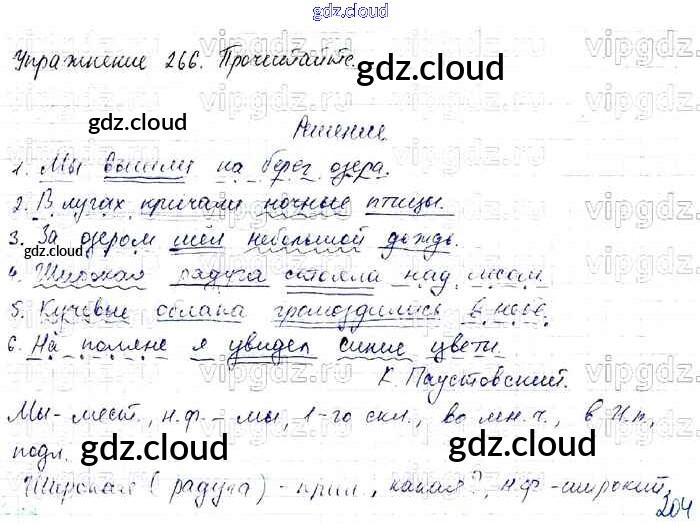 gdz.cloud
Упражнение 266. Прочитайте.
gdz.cloud
gdz.cloud
Решение
1. Мы вышли на берег озера.
2. В лугах кричали ночные птицы.
3. За озером шёл небольшой дождь.
gdz.cloud
4. Широкая радуга стояла над лесом.
5. Кучевые облака громоздились в небе.
6. На поляне я увидел синие цветы.
К. Паустовский.
Мы - мест., н.ф. - мы, 1-го скл., во мн.ч., в И.п.,
подл.
gdz.cloud
gdz.cloud
Широкая (радуга) - прил., какая?, н.ф - широкий,
204